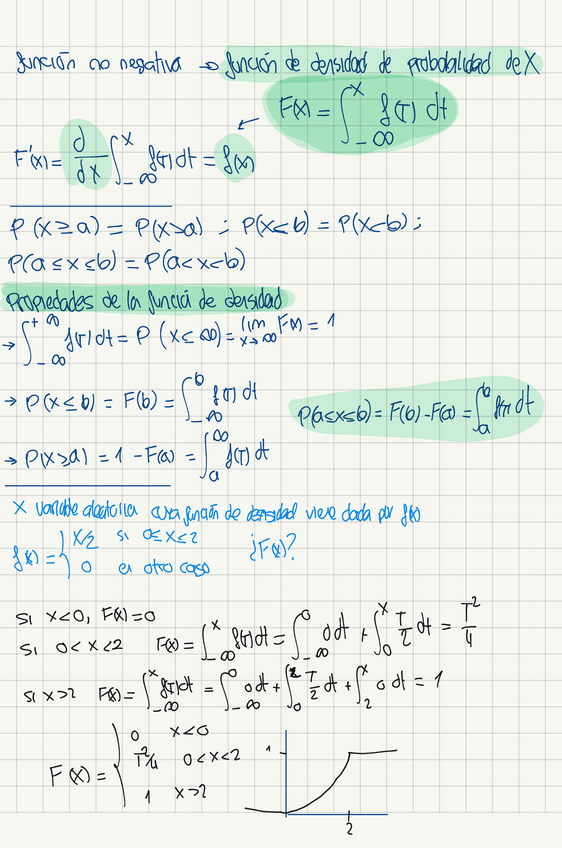 función no negativa → función de densidad de probabilidad de X
F(x) = ∫_{-∞}^{x} f(T) dt
F'(x) = d/dx ∫_{-∞}^{x} f(T) dt = f(x)
P(x ≥ a) = P(x > a) ; P(x ≤ b) = P(x < b) ;
P(a ≤ x ≤ b) = P(a < x < b)
Propiedades de la función de densidad
→ ∫_{-∞}^{+∞} f(T) dt = P(x ≤ ∞) = lim_{x→∞} F(x) = 1
→ P(x ≤ b) = F(b) = ∫_{-∞}^{b} f(T) dt
P(a ≤ x ≤ b) = F(b) - F(a) = ∫_{a}^{b} f(T) dt
→ P(x ≥ a) = 1 - F(a) = ∫_{a}^{∞} f(T) dt
X variable aleatoria cuya función de densidad viene dada por f(x)
f(x) = { x/2 si 0 ≤ x ≤ 2
0 en otro caso
¿F(x)?
si x < 0, F(x) = 0
si 0 < x < 2 F(x) = ∫_{-∞}^{x} f(T) dt = ∫_{-∞}^{0} 0 dt + ∫_{0}^{x} T/2 dt = T²/4
si x > 2 F(x) = ∫_{-∞}^{x} f(T) dt = ∫_{-∞}^{0} 0 dt + ∫_{0}^{2} T/2 dt + ∫_{2}^{x} 0 dt = 1
F(x) = { 0 x < 0
T²/4 0 < x < 2
1 x > 2
1
2